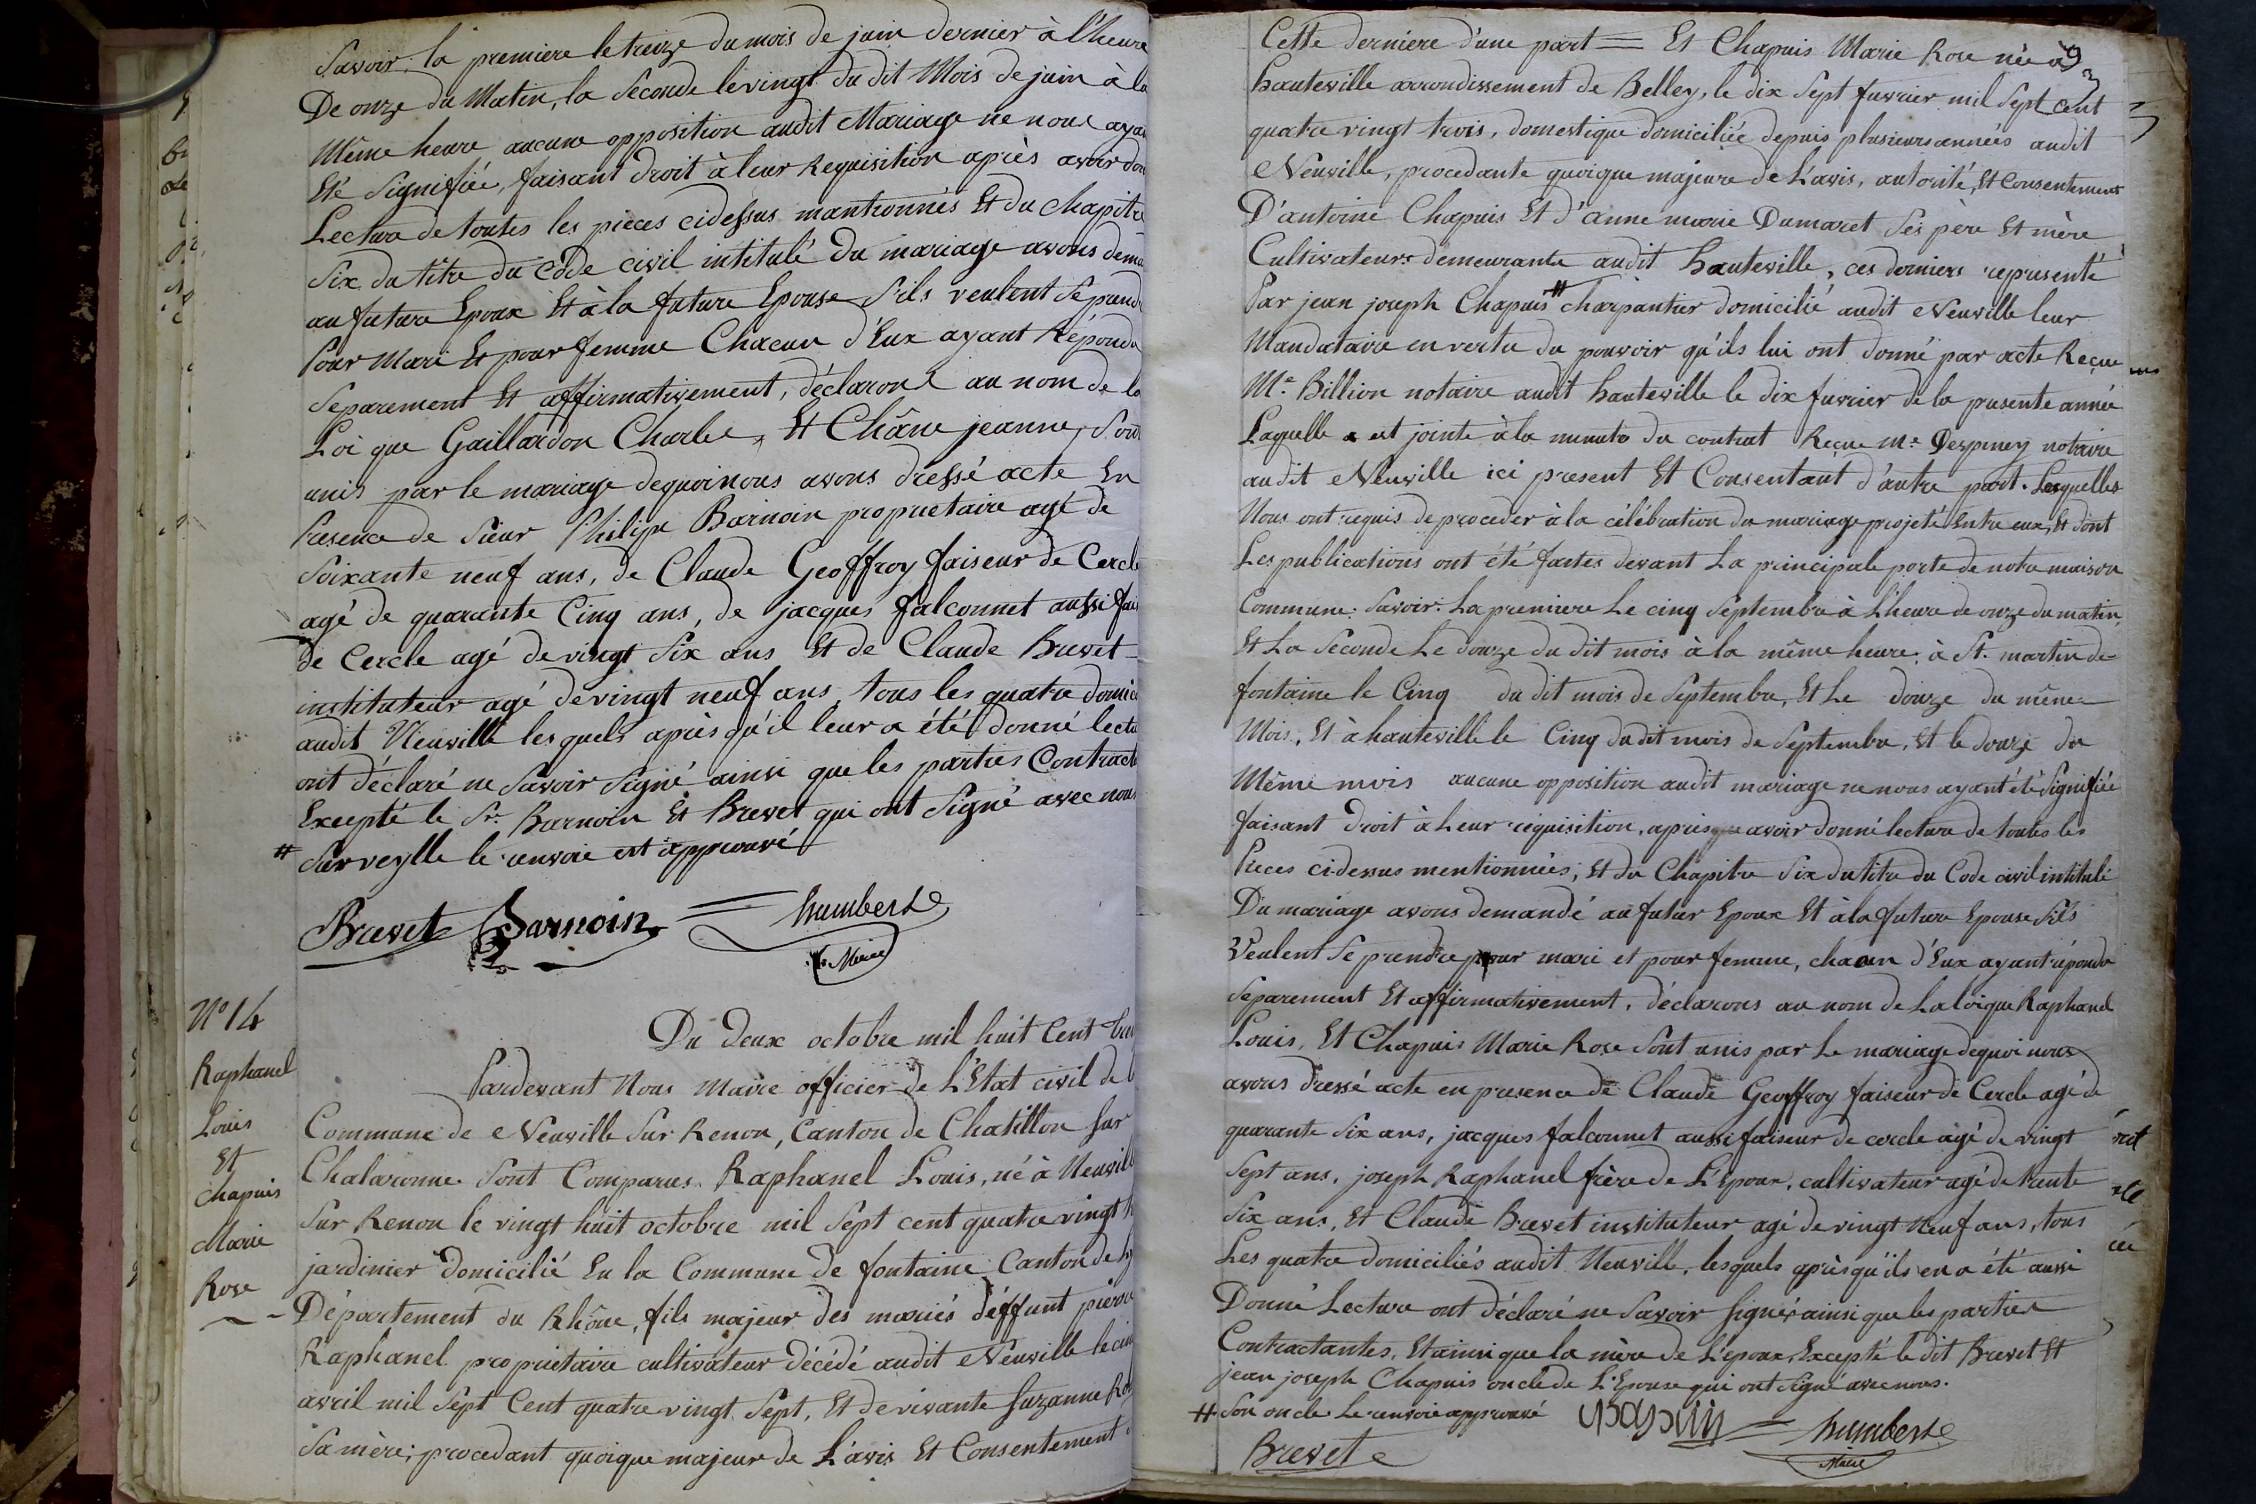 Savoir; la premiere le treize du mois de juin dernier à l'heure
De onze du Matin, la Seconde le vingt du dit Mois de juin à la
Même heure aucune opposition audit Mariage ne nous aya
Eté Signifiée, faisant droit à leur Requisition après avoir don
Lectura de toutes les pieces cidessus mantionnés Et du chapitre
Six du titre du Code civil intitulé Du mariage avons dema
au future Epoux Et à la future Epouse S'ils veulent Se prend
Pour Mari Et pour femme Chacun d'Eux ayant Répondu
Separement Et affirmativement, déclarons au nom de la
Loi que Gaillardon Charles, Et Châne jeanne, Sont
unis par le mariage dequoi nous avons dressé acte En
Presence de Sieur Philipe Barnoin proprietaire agé de
Soixante neuf ans, de Claude Geoffroy faiseur de Cercle
agé de quarante Cinq ans, de jacques falconnet aussi fais
de Cercle agé de vingt Six ans Et de Claude Brevet
instituteur agé de vingt neuf ans, tous les quatre domici
audit Neuville les quels après qu'il leur a été donné lectu
ont déclaré ne Savoir Signé ainsi que les parties Contract
Excepté le Sr. Barnoin Et Brevet qui ont Signé avec nous
# Surveylle le renvoie est approuvé
Brevet Barnoin humbert
Maire
N° 14
Raphanel
Louis
Et
Chapuis
Marie
Rose
Du deux octobre mil huit Cent
Pardevant Nous Maire officier de L'Etat civil de
Commune de Neuville Sur Renon, Canton de Chatillon Sur
Chalaronne Sont Comparus Raphanel Louis, né à Neuvill
Sur Renon le vingt huit octobre mil Sept cent quatre vingt
jardinier domicilié En la Commune de fontaine Canton de
Département du Rhône, fils majeur des mariés déffunt pierre
Raphanel proprietaire cultivateur décédé audit Neuville le cin
avril mil Sept Cent quatre vingt Sept, Et de vivante Suzanne
Sa mère; procedant quoique majeur de L'avis Et Consentement
Cette derniere d'une part = Et Chapuis Marie Rose née à
hauteville arrondissement de Belley, le dix Sept fuvrier mil Sept Cent
quatre vingt trois, domestique domiciliée depuis plusieurs années audit
Neuville, procedante quoique majeure de L'avis, autorité, Et Consentement
D'antoine Chapuis Et d'anne marie Dumaret Ses père Et mère
Cultivateurs demeurante audit hauteville, ces derniers representé
Par jean joseph Chapuis # charpantier domicilié audit Neuville leur
Mandataire en vertu du pouvoir qu'ils lui ont donné par acte Reçue
Me. Billion notaire audit hauteville le dix fuvrier de la presente année
Laquelle est jointe à la minute du contrat Reçue Me. Despiney notaire
audit Neuville ici present Et Consentant d'autre part. Lesquelles
Nous ont requis de proceder à la célébration du mariage projeté Entre eux, Et dont
Les publications ont été faites devant La principale porte de notre maison
Commune: Savoir: La premiere Le cinq Septembre à L'heure de onze du matin,
Et La Seconde Le douze du dit mois à la même heure; à St. martin de
fontaine le Cinq du dit mois de Septembre, Et Le douze du même
Mois, Et à hauteville le Cinq dudit mois de Septembre, Et le douze du
Même mois aucune opposition audit mariage ne nous ayant été Signifiée
faisant droit à Leur requisition, après avoir donné lectura de toutes les
Pieces cidessus mentionnées; Et du Chapitre Six du titre du Code civil intitulé
Du mariage avons demandé au futur Epoux Et à la future Epouse S'ils
Veulent Se prendre pour mari et pour femme, chacun d'Eux ayant répondu
Separement Et affirmativement, déclarons au nom de La loi que Raphanel
Louis, Et Chapuis Marie Rose Sont unis par Le mariage dequoi nous
avons dressé acte en presence de Claude Geoffroy faiseur de Cercle agé de
quarante Six ans, jacques falconnet aussi faiseur de cercle agé de vingt
Sept ans, joseph Raphanel frère de L'Epoux, cultivateur agé de trente
Six ans, Et Claude Brevet instituteur agé de vingt Neuf ans, tous
Les quatre domiciliés audit Neuville, lesquels après qu'ils en a été aussi
Donné Lecture ont déclaré ne Savoir Signés ainsi que les parties
Contractantes, Et ainsi que la mère de L'epoux, Excepté le dit Brevet Et
jean joseph Chapuis oncle de L'Epouse qui ont Signé avec nous.
# Son oncle Le renvoie approuvé Chapuis humbert
Brevet Maire